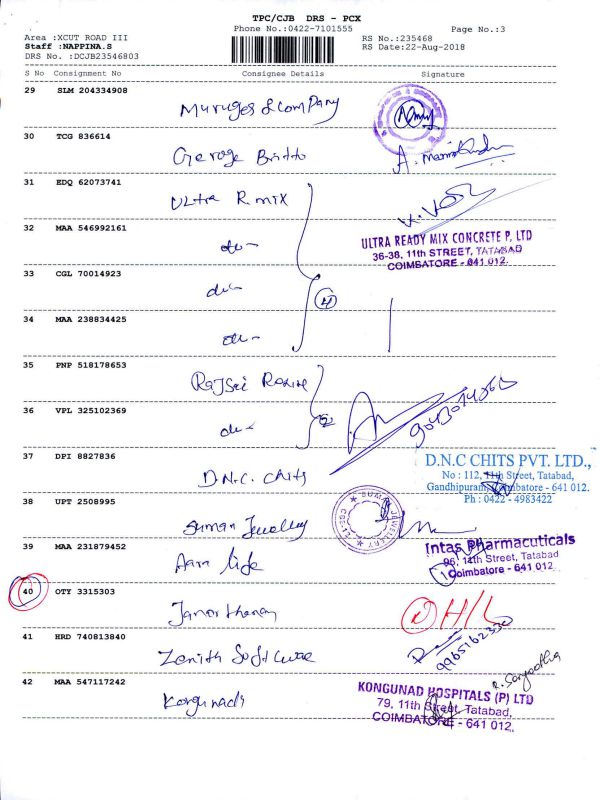 TPC/CJB DRS - PCX
Phone No.:0422-7101555
Page No.:3
Area :XCUT ROAD III
RS No.:235468
Staff :NAPPINA.S
RS Date:22-Aug-2018
DRS No. :DCJB23546803
S No Consignment No Consignee Details Signature
29 SLM 204334908
Muruges & company
30 TCG 836614
George Britto
31 EDQ 62073741
Ultra R. mix
32 MAA 546992161
do -
ULTRA READY MIX CONCRETE P. LTD
36-38, 11th STREET, TATABAD
COIMBATORE - 641 012.
33 CGL 70014923
do -
4
34 MAA 238834425
do -
35 PNP 518178653
Rajsri
36 VPL 325102369
do -
2
37 DPI 8827836
D.N.C. Chits
D.N.C CHITS PVT. LTD.,
No : 112, 11th Street, Tatabad,
Gandhipuram, Coimbatore - 641 012.
Ph : 0422 - 4983422
38 UPT 2508995
Suman Jewellery
39 MAA 231879452
Aara life
Intas Pharmacuticals
96, 11th Street, Tatabad
Coimbatore - 641 012
40 OTY 3315303
D H/L
41 HRD 740813840
Zenith Software
42 MAA 547117242
Kongunadu
KONGUNAD HOSPITALS (P) LTD
79, 11th Street, Tatabad,
COIMBATORE - 641 012.